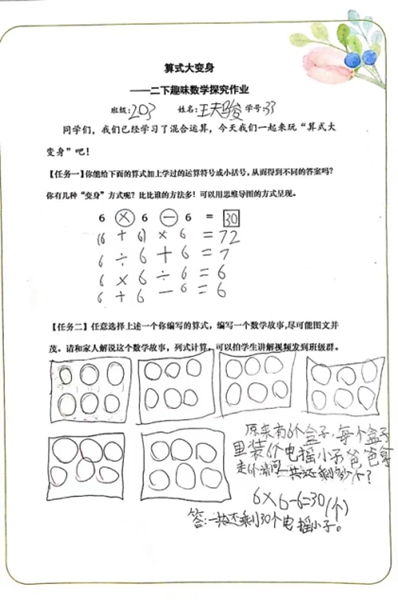 算式大变身
——二下趣味数学探究作业
班级:203 姓名:王天骏 学号:33
同学们，我们已经学习了混合运算，今天我们一起来玩“算式大
变身”吧！
【任务一】你能给下面的算式加上学过的运算符号或小括号，从而得到不同的答案吗？
你有几种“变身”方式呢？比比谁的方法多！可以用思维导图的方式呈现。
6 × 6 － 6 = 30
(6 + 6) × 6 = 72
6 ÷ 6 + 6 = 7
6 × 6 ÷ 6 = 6
6 + 6 - 6 = 6
【任务二】任意选择上述一个你编写的算式，编写一个数学故事，尽可能图文并
茂。请和家人解说这个数学故事，列式计算。可以拍学生讲解视频发到班级群。
原来有6个盒子，每个盒子
里装6个电摇小子爸爸拿
走6个请问一共还剩多少个？
6×6-6=30(个)
答:一共还剩30个电摇小子。